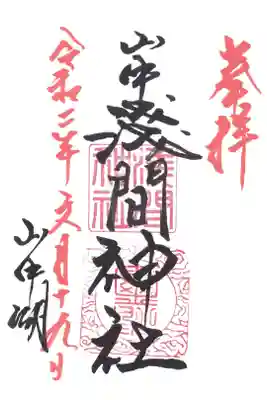 奉拝
山中浅間神社
令和二年六月十九日
山中湖